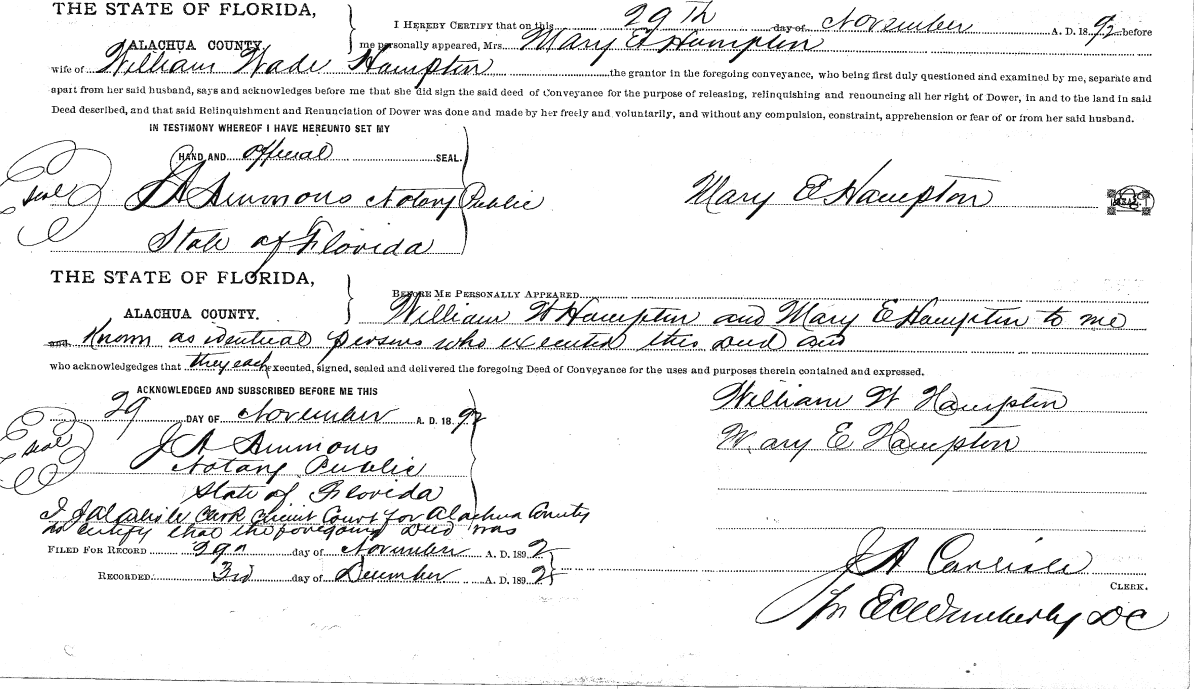 THE STATE OF FLORIDA,
ALACHUA COUNTY.
I HEREBY CERTIFY that on this 29th day of November A. D. 1892 before
me personally appeared, Mrs. Mary E Hampton
wife of William Wade Hampton the grantor in the foregoing conveyance, who being first duly questioned and examined by me, separate and
apart from her said husband, says and acknowledges before me that she did sign the said deed of Conveyance for the purpose of releasing, relinquishing and renouncing all her right of Dower, in and to the land in said
Deed described, and that said Relinquishment and Renunciation of Dower was done and made by her freely and voluntarily, and without any compulsion, constraint, apprehension or fear of or from her said husband.
IN TESTIMONY WHEREOF I HAVE HEREUNTO SET MY
HAND AND official SEAL.
Seal
J A Ammons Notary Public
State of Florida
Mary E Hampton
THE STATE OF FLORIDA,
ALACHUA COUNTY.
BEFORE ME PERSONALLY APPEARED
William W Hampton and Mary E Hampton to me
and Known as identical persons who executed this deed and
who acknowledgedges that they each executed, signed, sealed and delivered the foregoing Deed of Conveyance for the uses and purposes therein contained and expressed.
ACKNOWLEDGED AND SUBSCRIBED BEFORE ME THIS
29 DAY OF November A. D. 1892
Seal
J A Ammons
Notary Public
State of Florida
William W Hampton
Mary E Hampton
I J A Carlisle Clerk Circuit Court for Alachua County
do certify that the foregoing Deed was
FILED FOR RECORD 29th day of November A. D. 1892
RECORDED 3rd day of December A. D. 1892
J A Carlisle
CLERK.
Per E C Wimberly DC